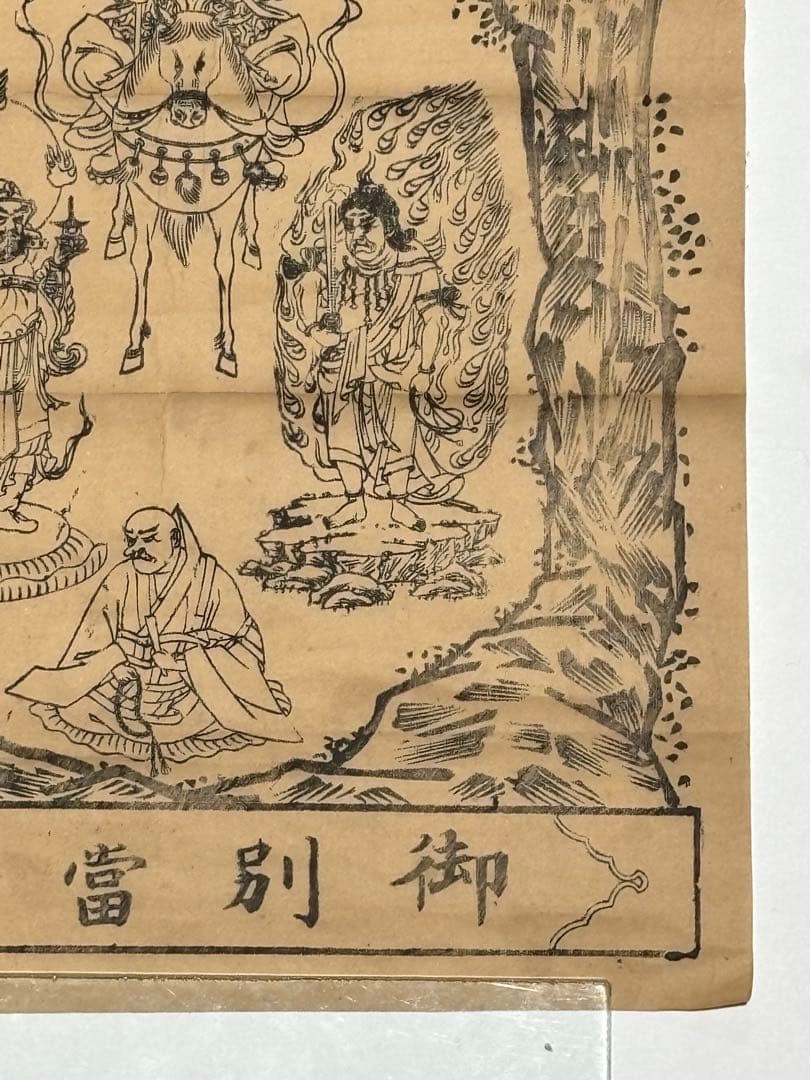 御別當